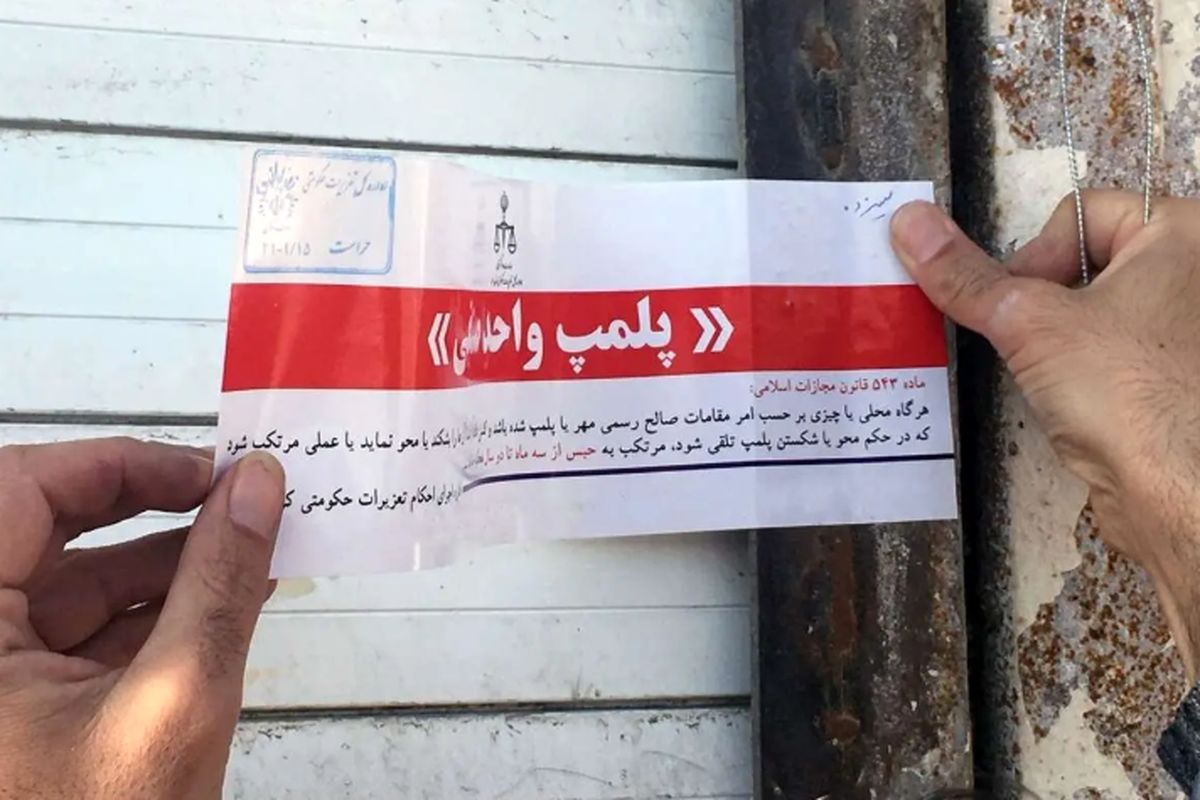 اداره کل تعزیرات حکومتی
حراست
سیزده
« پلمپ واحد صنفی »
ماده ۵۴۳ قانون مجازات اسلامی:
هرگاه محلی یا چیزی بر حسب امر مقامات صالح رسمی مهر یا پلمپ شده باشد و کسی شکند یا محو نماید یا عملی مرتکب شود
که در حکم محو یا شکستن پلمپ تلقی شود، مرتکب به حبس از سه ماه تا دو سال
اجرای احکام تعزیرات حکومتی